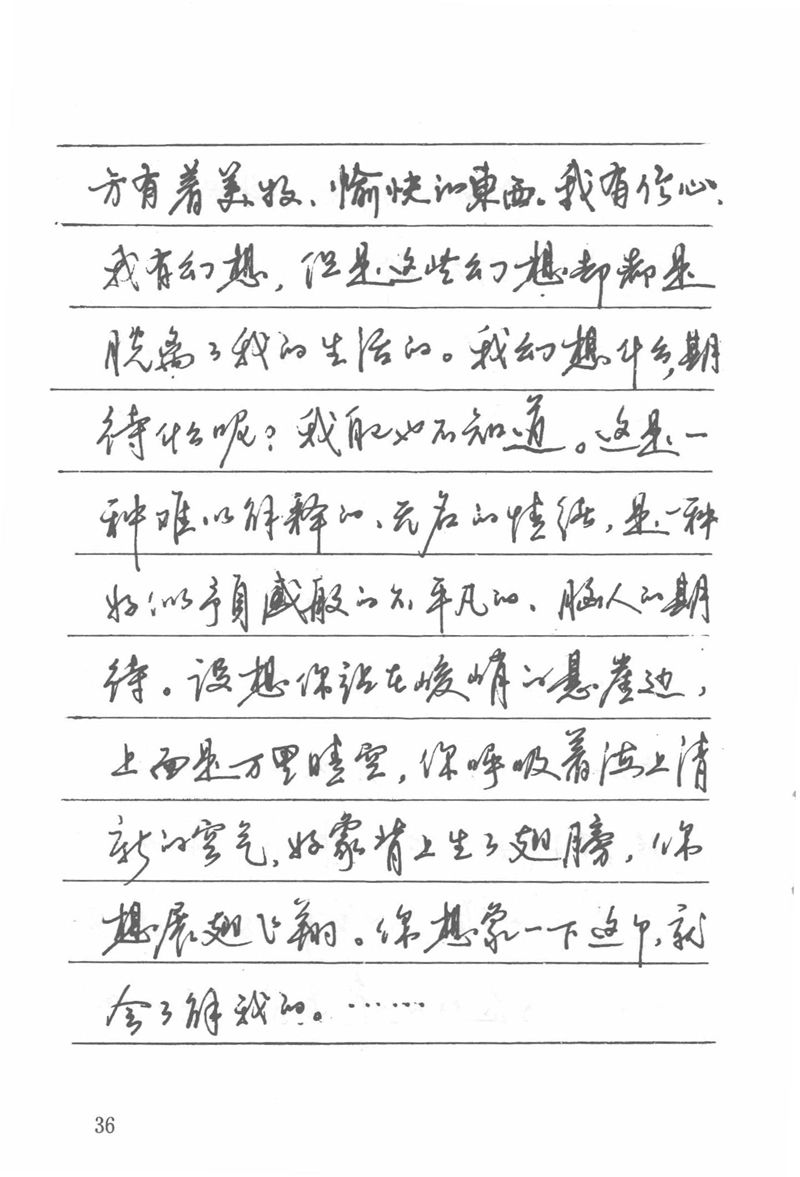 方有着美好、愉快的東西。我有信心、
我有幻想，但是这些幻想却都是
脱离了我的生活的。我幻想什么，期
待什么呢？我自己也不知道。这是一
种难以解释的、无名的情绪，是一种
好似預感般的不平凡的、恼人的期
待。设想你站在峻峭的悬崖边，
上面是万里晴空，你呼吸着海上清
新的空气，好象背上生了翅膀，你
想展翅飞翔。你想象一下这个，就
会了解我的。……
36